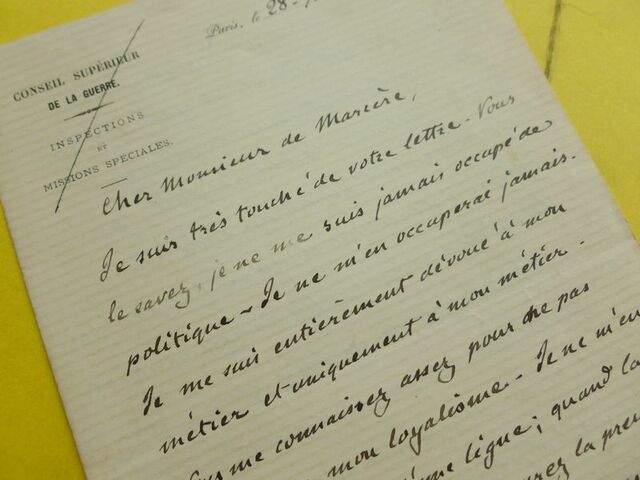 Paris, le 28
CONSEIL SUPÉRIEUR
DE LA GUERRE.
INSPECTIONS
ET
MISSIONS SPÉCIALES.
Cher Monsieur de Marcère,
Je suis très touché de votre lettre. Vous
le savez, je ne me suis jamais occupé de
politique - Je ne m'en occuperai jamais.
Je me suis entièrement dévoué à mon
métier et uniquement à mon métier.
me connaissez assez pour ne pas
mon loyalisme - Je ne m'en
ligne; quand la
la